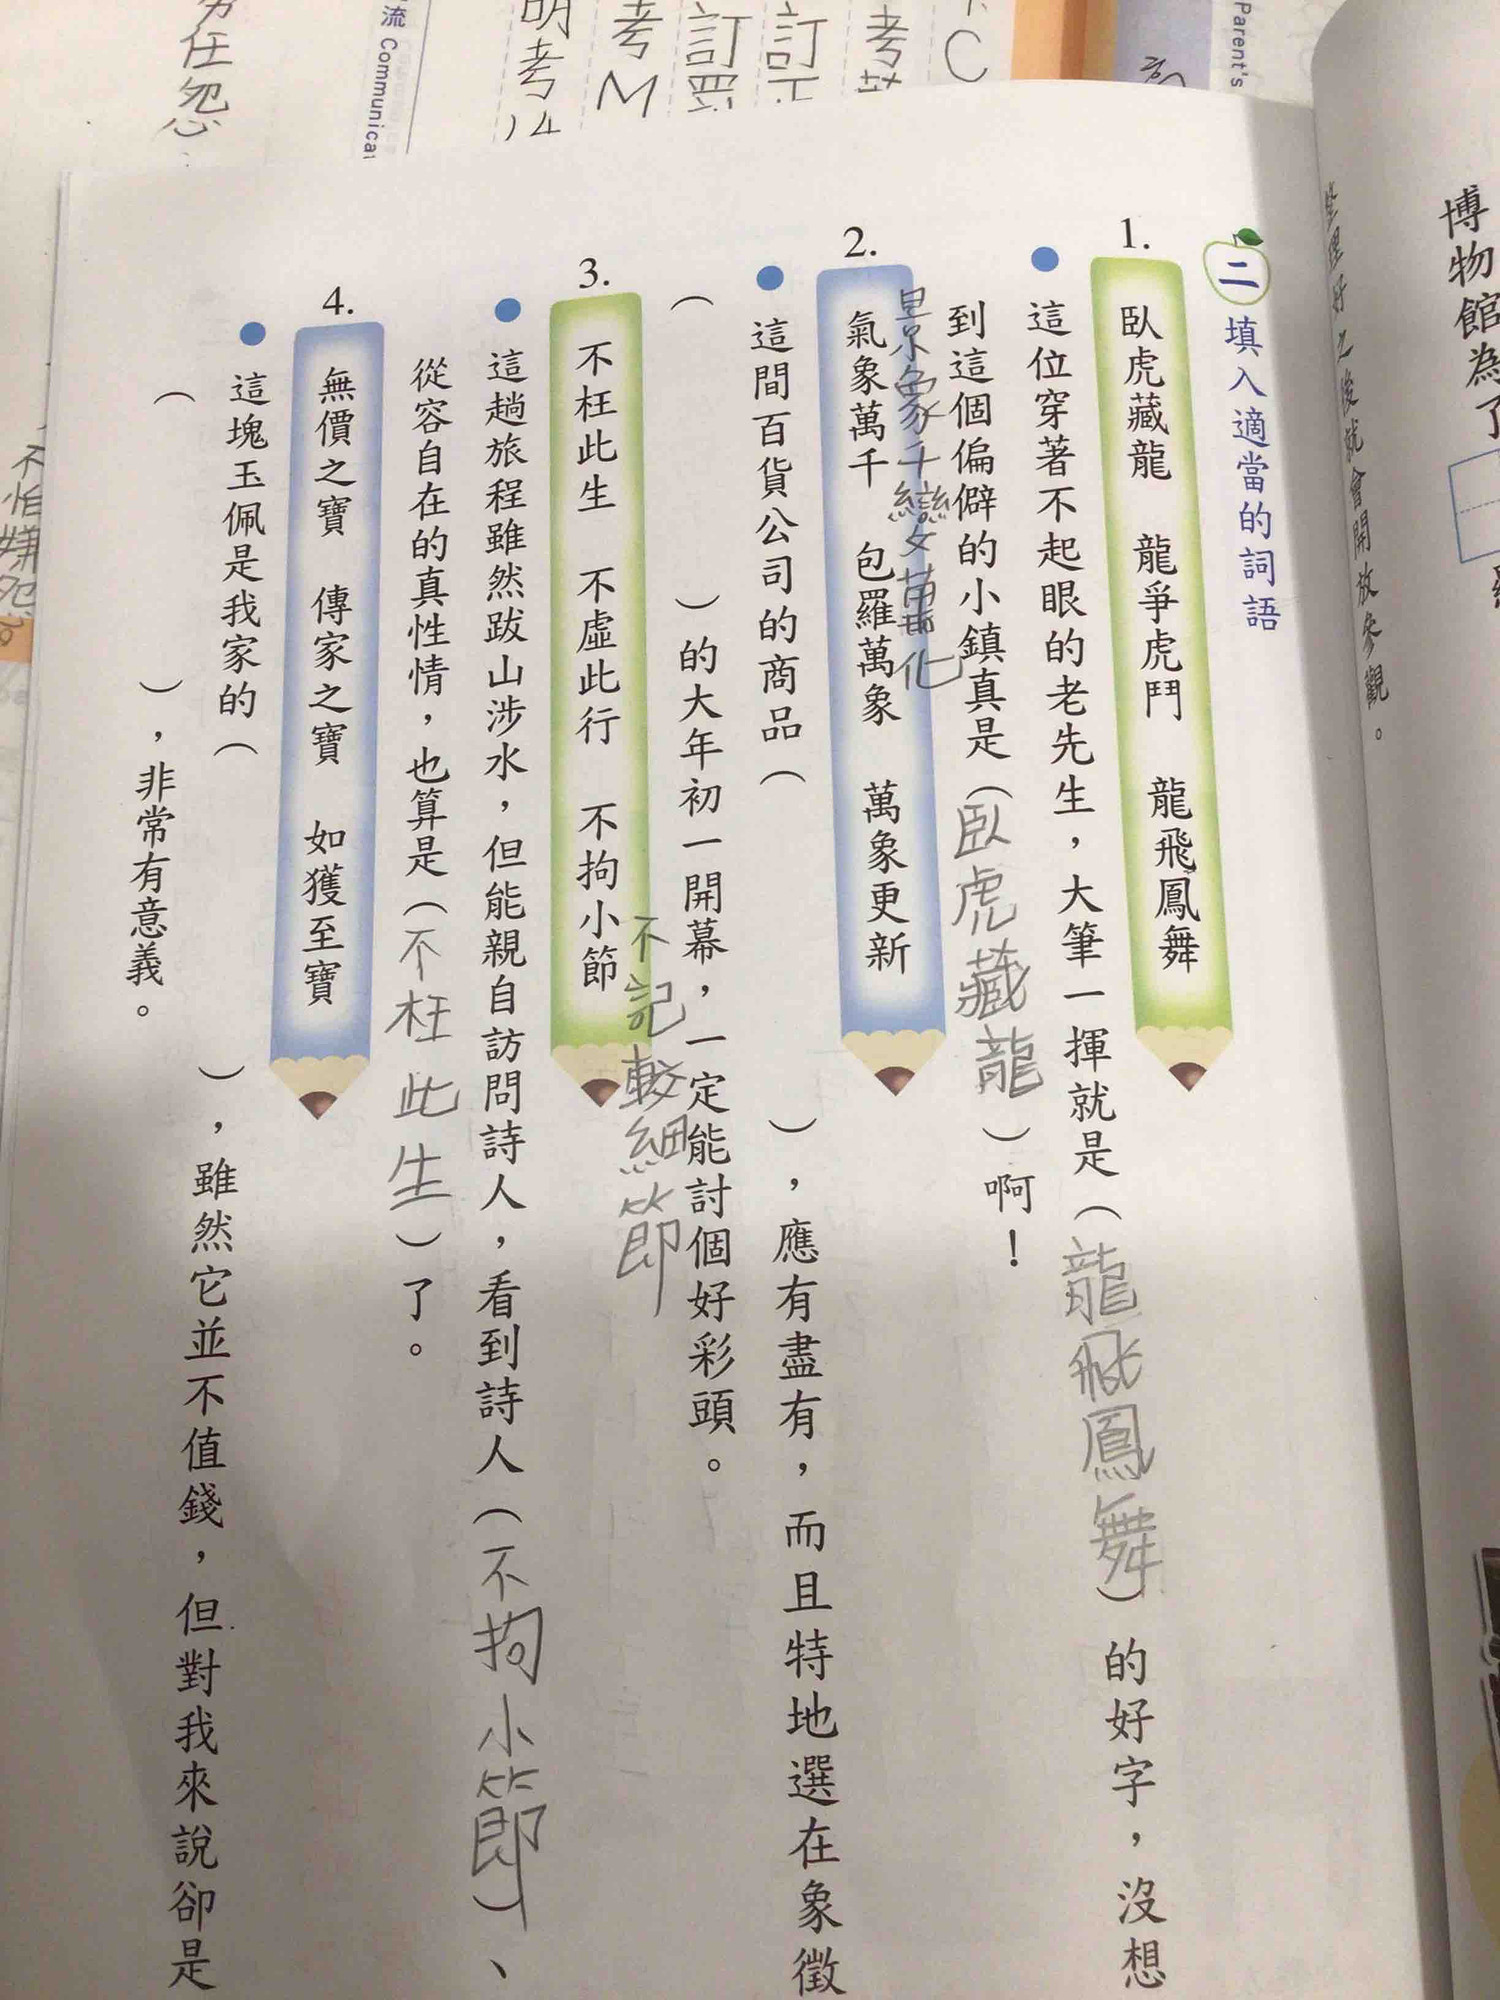 博物館為了
整理好之後就會開放參觀。
二 填入適當的詞語
1. 臥虎藏龍 龍爭虎鬥 龍飛鳳舞
這位穿著不起眼的老先生，大筆一揮就是（龍飛鳳舞）的好字，沒想
到這個偏僻的小鎮真是（臥虎藏龍）啊！
景象千變萬化
2. 氣象萬千 包羅萬象 萬象更新
這間百貨公司的商品（ ），應有盡有，而且特地選在象徵
（ ）的大年初一開幕，一定能討個好彩頭。
不記較細節
3. 不枉此生 不虛此行 不拘小節
這趟旅程雖然跋山涉水，但能親自訪問詩人，看到詩人（不拘小節）、
從容自在的真性情，也算是（不枉此生）了。
4. 無價之寶 傳家之寶 如獲至寶
這塊玉佩是我家的（ ），雖然它並不值錢，但對我來說卻是
（ ），非常有意義。
Parent's
C
考
訂
訂
考 M
明考 14
流 Communica
任怨
不怕嫌怨